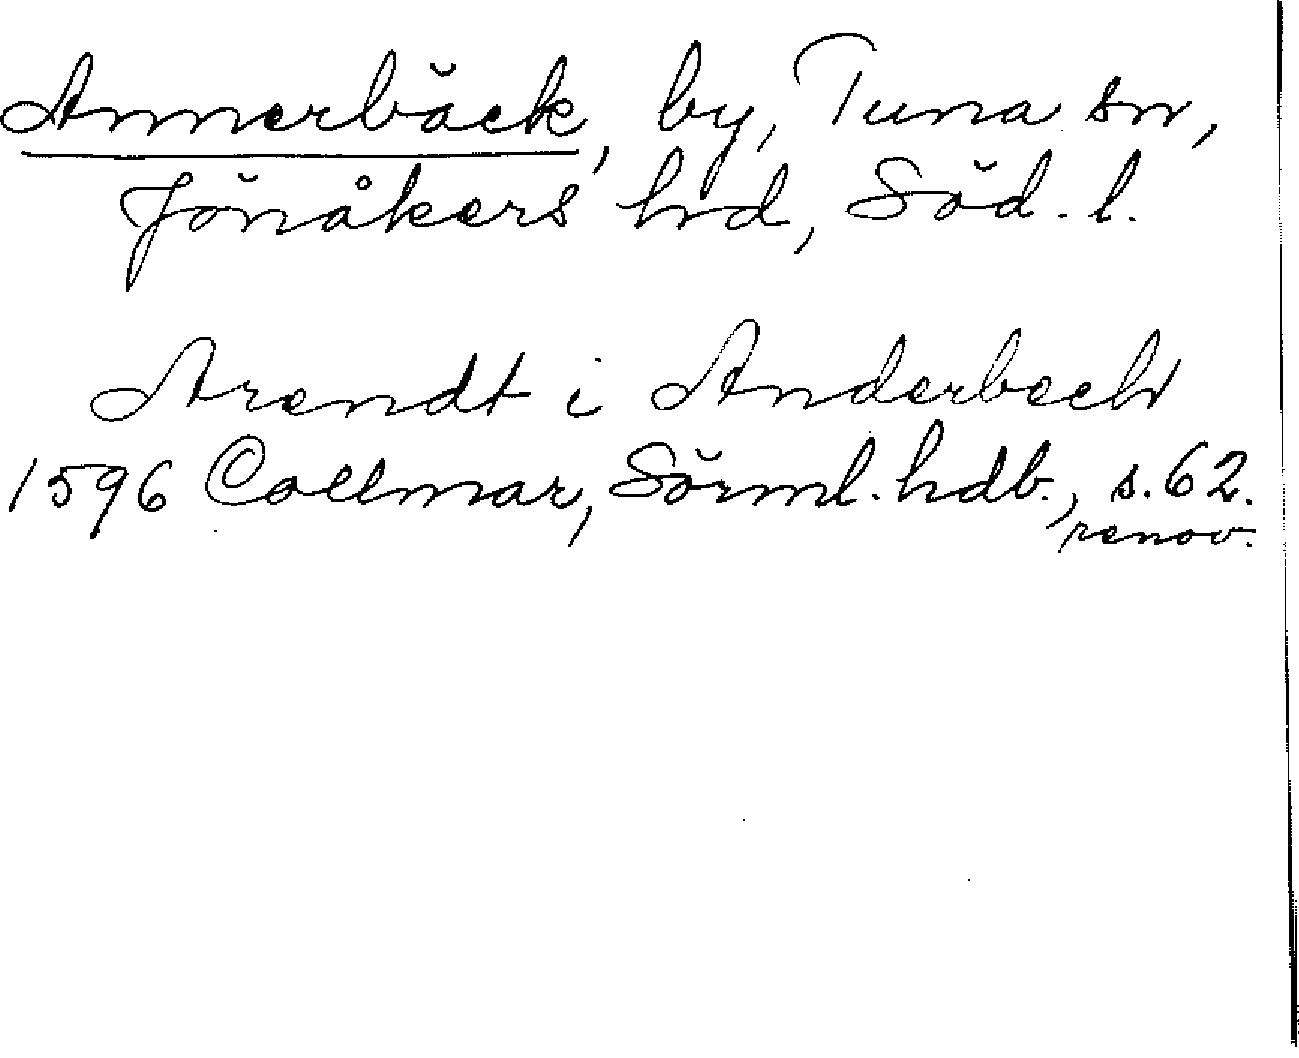 Annerbäck, by, Tuna sn,
Jönåkers hrd, Söd. l.
Arendt i Anderbech
1596 Collmar, Sörml. hdb., s. 62.
renov.